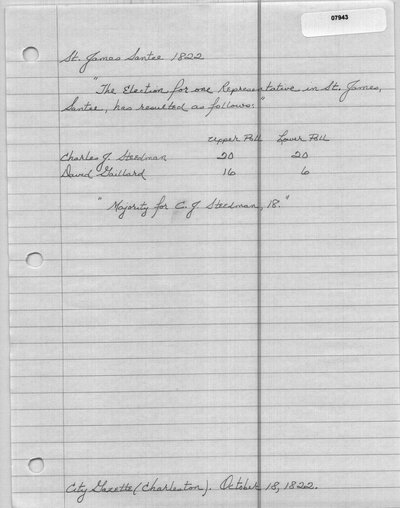 07943
St. James Santee 1822
"The Election for one Representative in St. James,
Santee, has resulted as follows:"
Upper Poll Lower Poll
Charles J. Steedman 20 20
David Gaillard 16 6
"Majority for C. J. Steedman, 18."
City Gazette (Charleston). October 18, 1822.